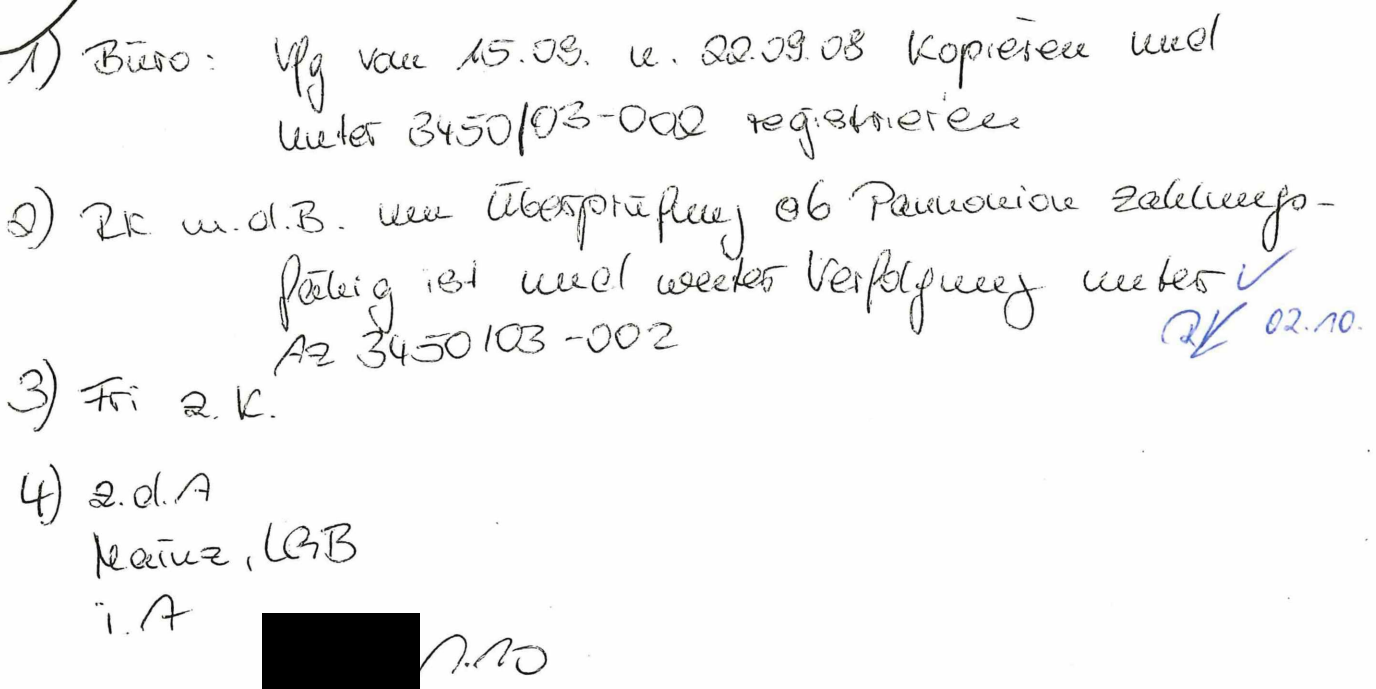 1) Büro: Vfg vom 15.09. u. 22.09.08 kopieren und
unter 3450/03-002 registrieren
2) RK m.d.B. um Überprüfung ob Pannonion zahlungs-
fähig ist und weiter Verfolgung unter ✓
Az 3450/03-002 RK 02.10.
3) Fri z.K.
4) z.d.A
Mainz, LGB
i.A
1.10